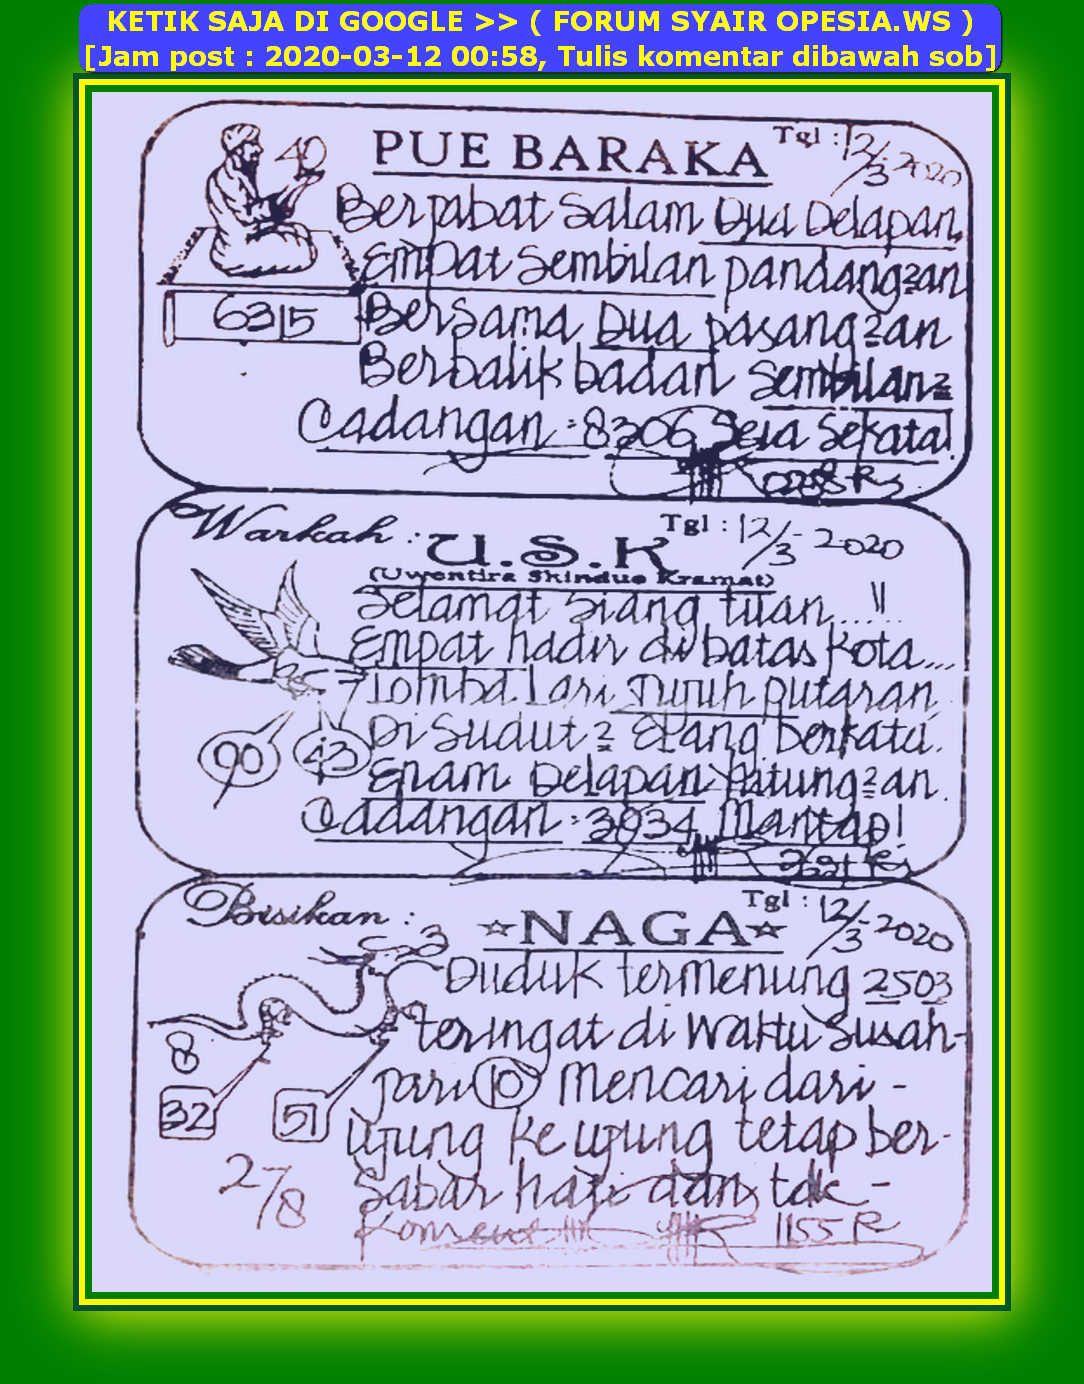 KETIK SAJA DI GOOGLE >> ( FORUM SYAIR OPESIA.WS )
[Jam post : 2020-03-12 00:58, Tulis komentar dibawah sob]
PUE BARAKA
Tgl : 12/3-2020
40
Berjabat Salam Dua Delapan
Empat Sembilan pandang2an
6315
Bersama Dua pasang2an
Berbalik badan Sembilan2
Cadangan : 8306 Seia Sekata!
Warkah : U.S.K
Tgl : 12/3-2020
(Uwentira Skinduo Kramat)
Selamat Siang tuan...!!
Empat hadir di batas kota...
Lomba Lari Tujuh putaran
90
43
Di Sudut2 Elang berkata
Enam Delapan hitung2an
Cadangan : 3934 Mantap!
Bisikan : ☆NAGA☆
Tgl : 12/3-2020
3
Duduk termenung 2503
8
teringat di Waktu Susah-
32
51
Jari 10 Mencari dari -
Ujung ke ujung tetap ber-
27/8
Sabar haji dan tdk -
1155 R